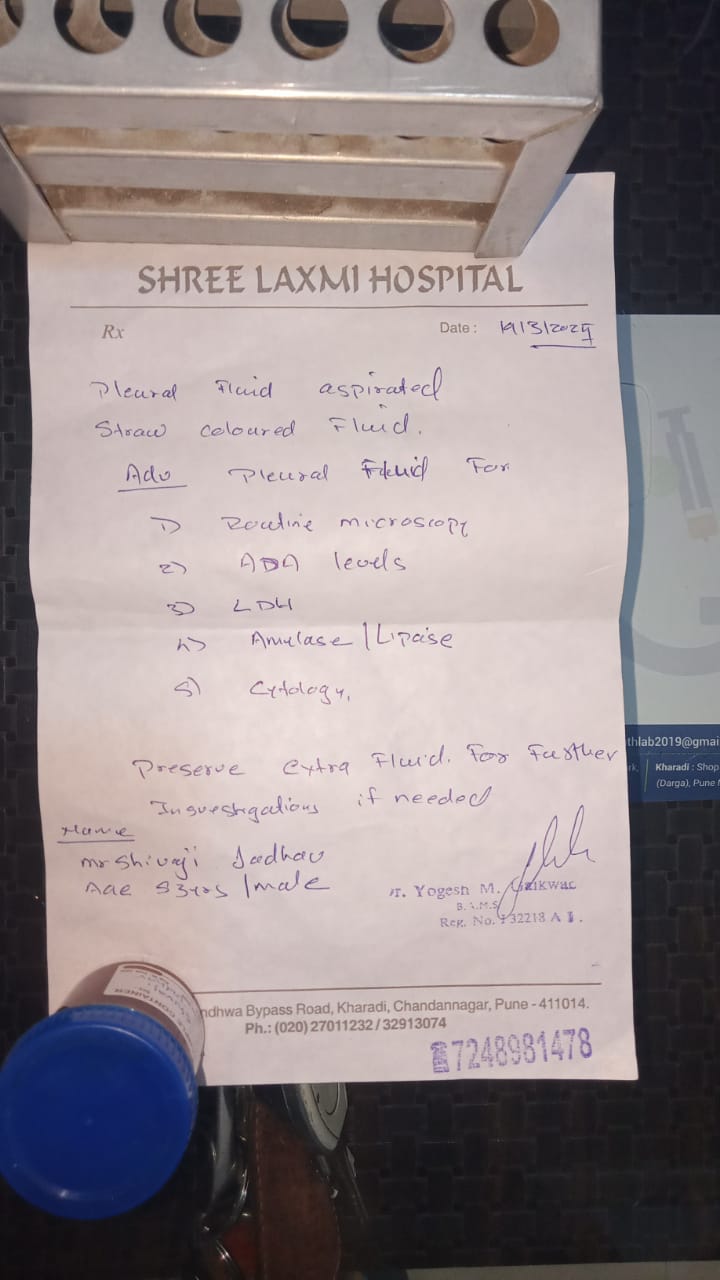 SHREE LAXMI HOSPITAL
Rx
Date : 19/3/2025
Pleural Fluid aspirated
Straw coloured Fluid.
Adv Pleural Fluid For
1) Routine microscopy
2) ADA levels
3) LDH
4) Amylase / Lipase
5) Cytology,
Preserve extra Fluid. For Further
Investigations if needed
Name
mr Shivaji Jadhav
Age 53yrs / male
Yogesh M.
B.A.M.S
Reg. No. 32218 A
ndhwa Bypass Road, Kharadi, Chandannagar, Pune - 411014.
Ph.: (020) 27011232 / 32913074
☎7248981478
thlab2019@gmai
rk, Kharadi : Shop
(Darga), Pune
CONTAINER